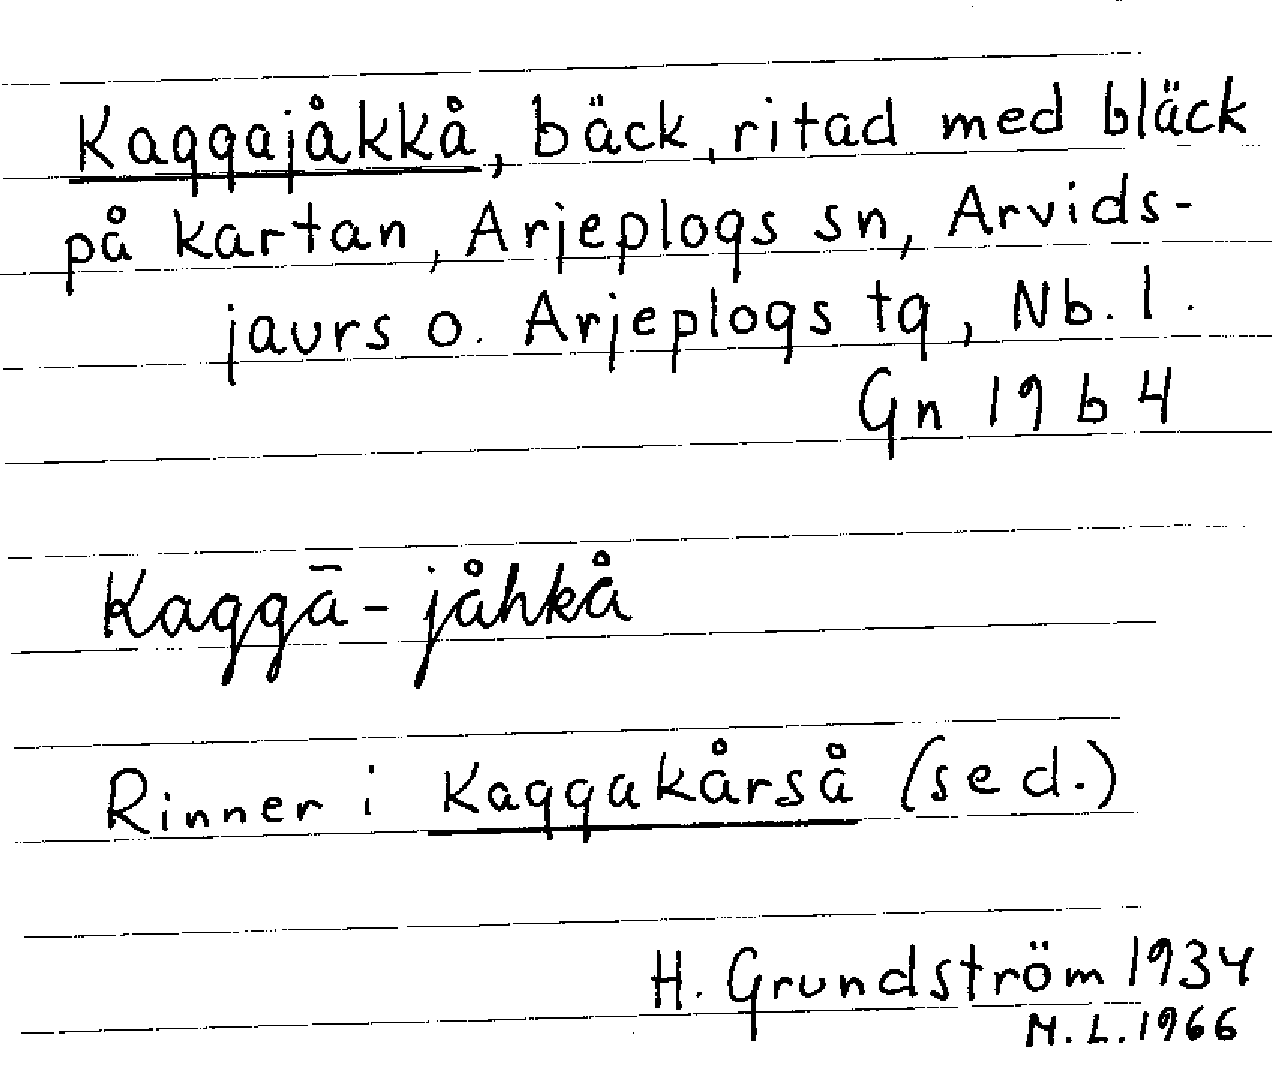 Kaggajåkkå, bäck, ritad med bläck
på kartan, Arjeplogs sn, Arvids-
jaurs o. Arjeplogs tg, Nb. l.
Gn 19 b 4
Kaggā-jåhkå
Rinner i Kaggakårså (sed.)
H. Grundström 1934
M.L. 1966